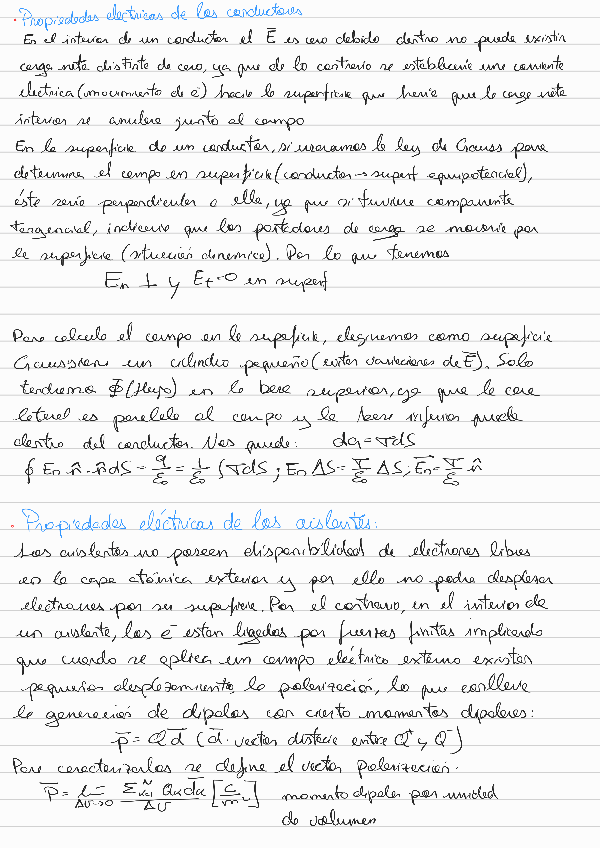 · Propiedades eléctricas de los conductores
En el interior de un conductor el E̅ es cero debido dentro no puede existir
carga neta distinta de cero, ya que de lo contrario se establecería una corriente
eléctrica (movimiento de e⁻) hacia la superficie que haría que la carga neta
interior se anulara junto al campo
En la superficie de un conductor, si usaramos la ley de Gauss para
determinar el campo en superficie (conductor → superf equipotencial),
éste sería perpendicular a ella, ya que si tuviera componente
tangencial, indicaría que los portadores de carga se moverían por
la superficie (situación dinámica). Por lo que tenemos
En ⊥ y Et=0 en superf
Para calcular el campo en la superficie, elegiremos como superficie
Gaussiana un cilindro pequeño (evitar variaciones de E̅). Solo
tendremos Φ (flujo) en la base superior, ya que la cara
lateral es paralela al campo y la base inferior queda
dentro del conductor. Nos queda: dq = σdS
∮ En n̂ · n̂dS = q/ε₀ = 1/ε₀ ∫σdS ; En ΔS = σ/ε₀ ΔS ; E̅n = σ/ε₀ n̂
· Propiedades eléctricas de los aislantes:
Los aislantes no poseen disponibilidad de electrones libres
en la capa atómica exterior y por ello no podrá desplazar
electrones por su superficie. Por el contrario, en el interior de
un aislante, los e⁻ están ligados por fuerzas finitas implicando
que cuando se aplica un campo eléctrico externo existan
pequeños desplazamientos, la polarización, lo que conlleva
la generación de dipolos con cierto momentos dipolares:
p̅ = Q d̅ (d̅ · vector distancia entre Q⁺ y Q⁻)
Para caracterizarlos se define el vector Polarización.
P̅ = lim Δv→0 Σ Qk d̅k / Δv [C/m²] momento dipolar por unidad
de volumen